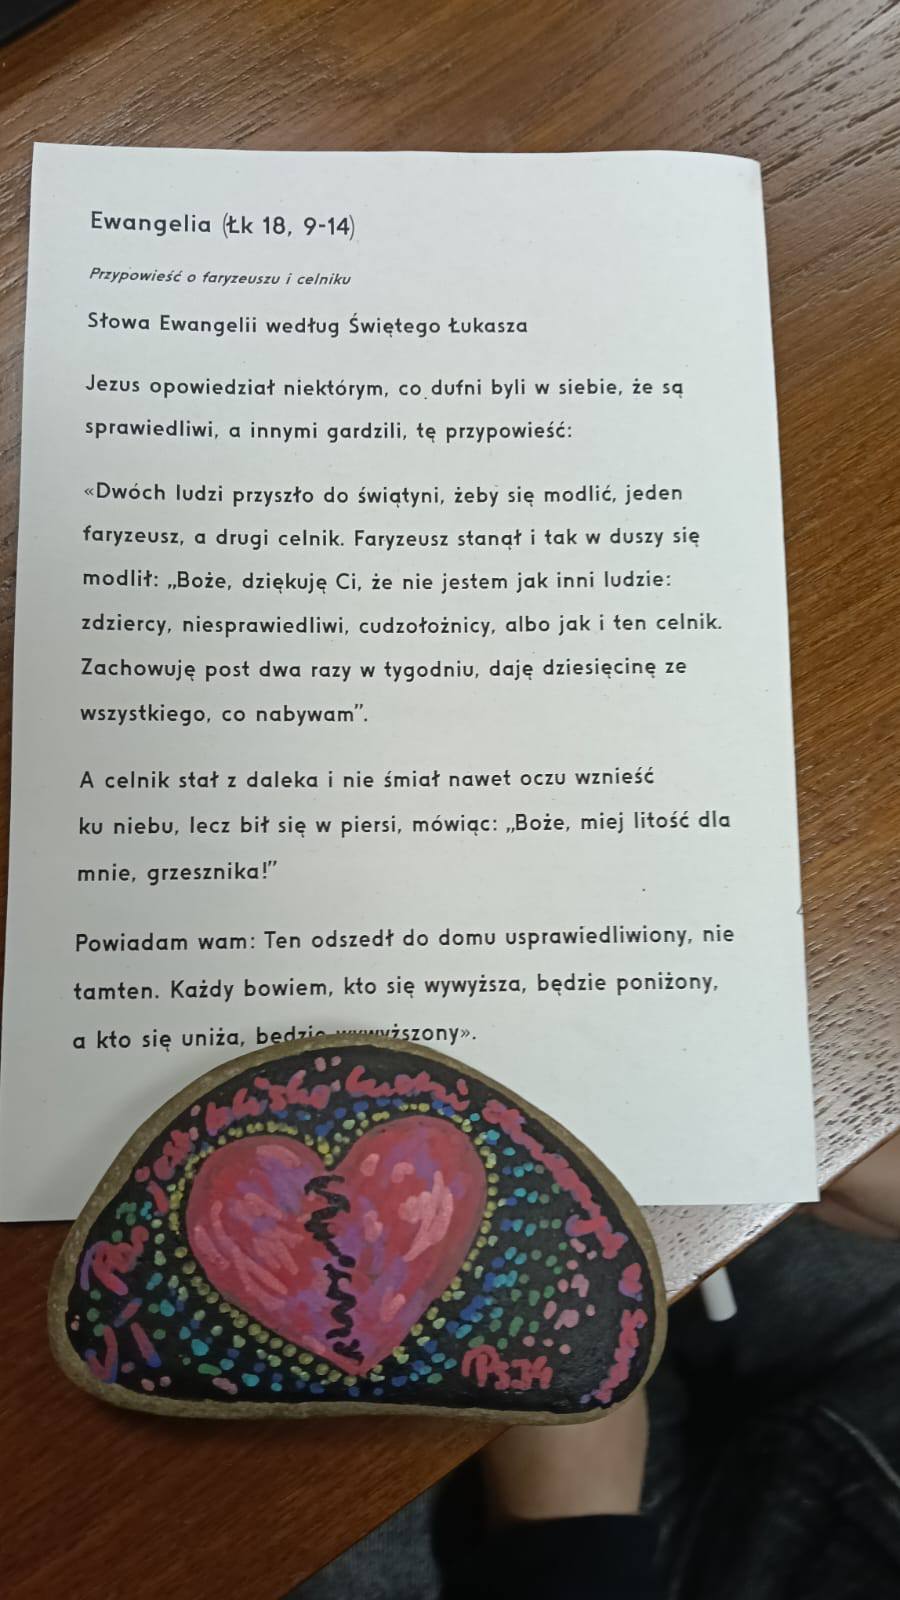 Ewangelia (Łk 18, 9-14)
Przypowieść o faryzeuszu i celniku
Słowa Ewangelii według Świętego Łukasza
Jezus opowiedział niektórym, co dufni byli w siebie, że są
sprawiedliwi, a innymi gardzili, tę przypowieść:
«Dwóch ludzi przyszło do świątyni, żeby się modlić, jeden
faryzeusz, a drugi celnik. Faryzeusz stanął i tak w duszy się
modlił: „Boże, dziękuję Ci, że nie jestem jak inni ludzie:
zdziercy, niesprawiedliwi, cudzołożnicy, albo jak i ten celnik.
Zachowuję post dwa razy w tygodniu, daję dziesięcinę ze
wszystkiego, co nabywam”.
A celnik stał z daleka i nie śmiał nawet oczu wznieść
ku niebu, lecz bił się w piersi, mówiąc: „Boże, miej litość dla
mnie, grzesznika!”
Powiadam wam: Ten odszedł do domu usprawiedliwiony, nie
tamten. Każdy bowiem, kto się wywyższa, będzie poniżony,
a kto się uniża, będzie wywyższony».
Pan jest blisko
Ps34